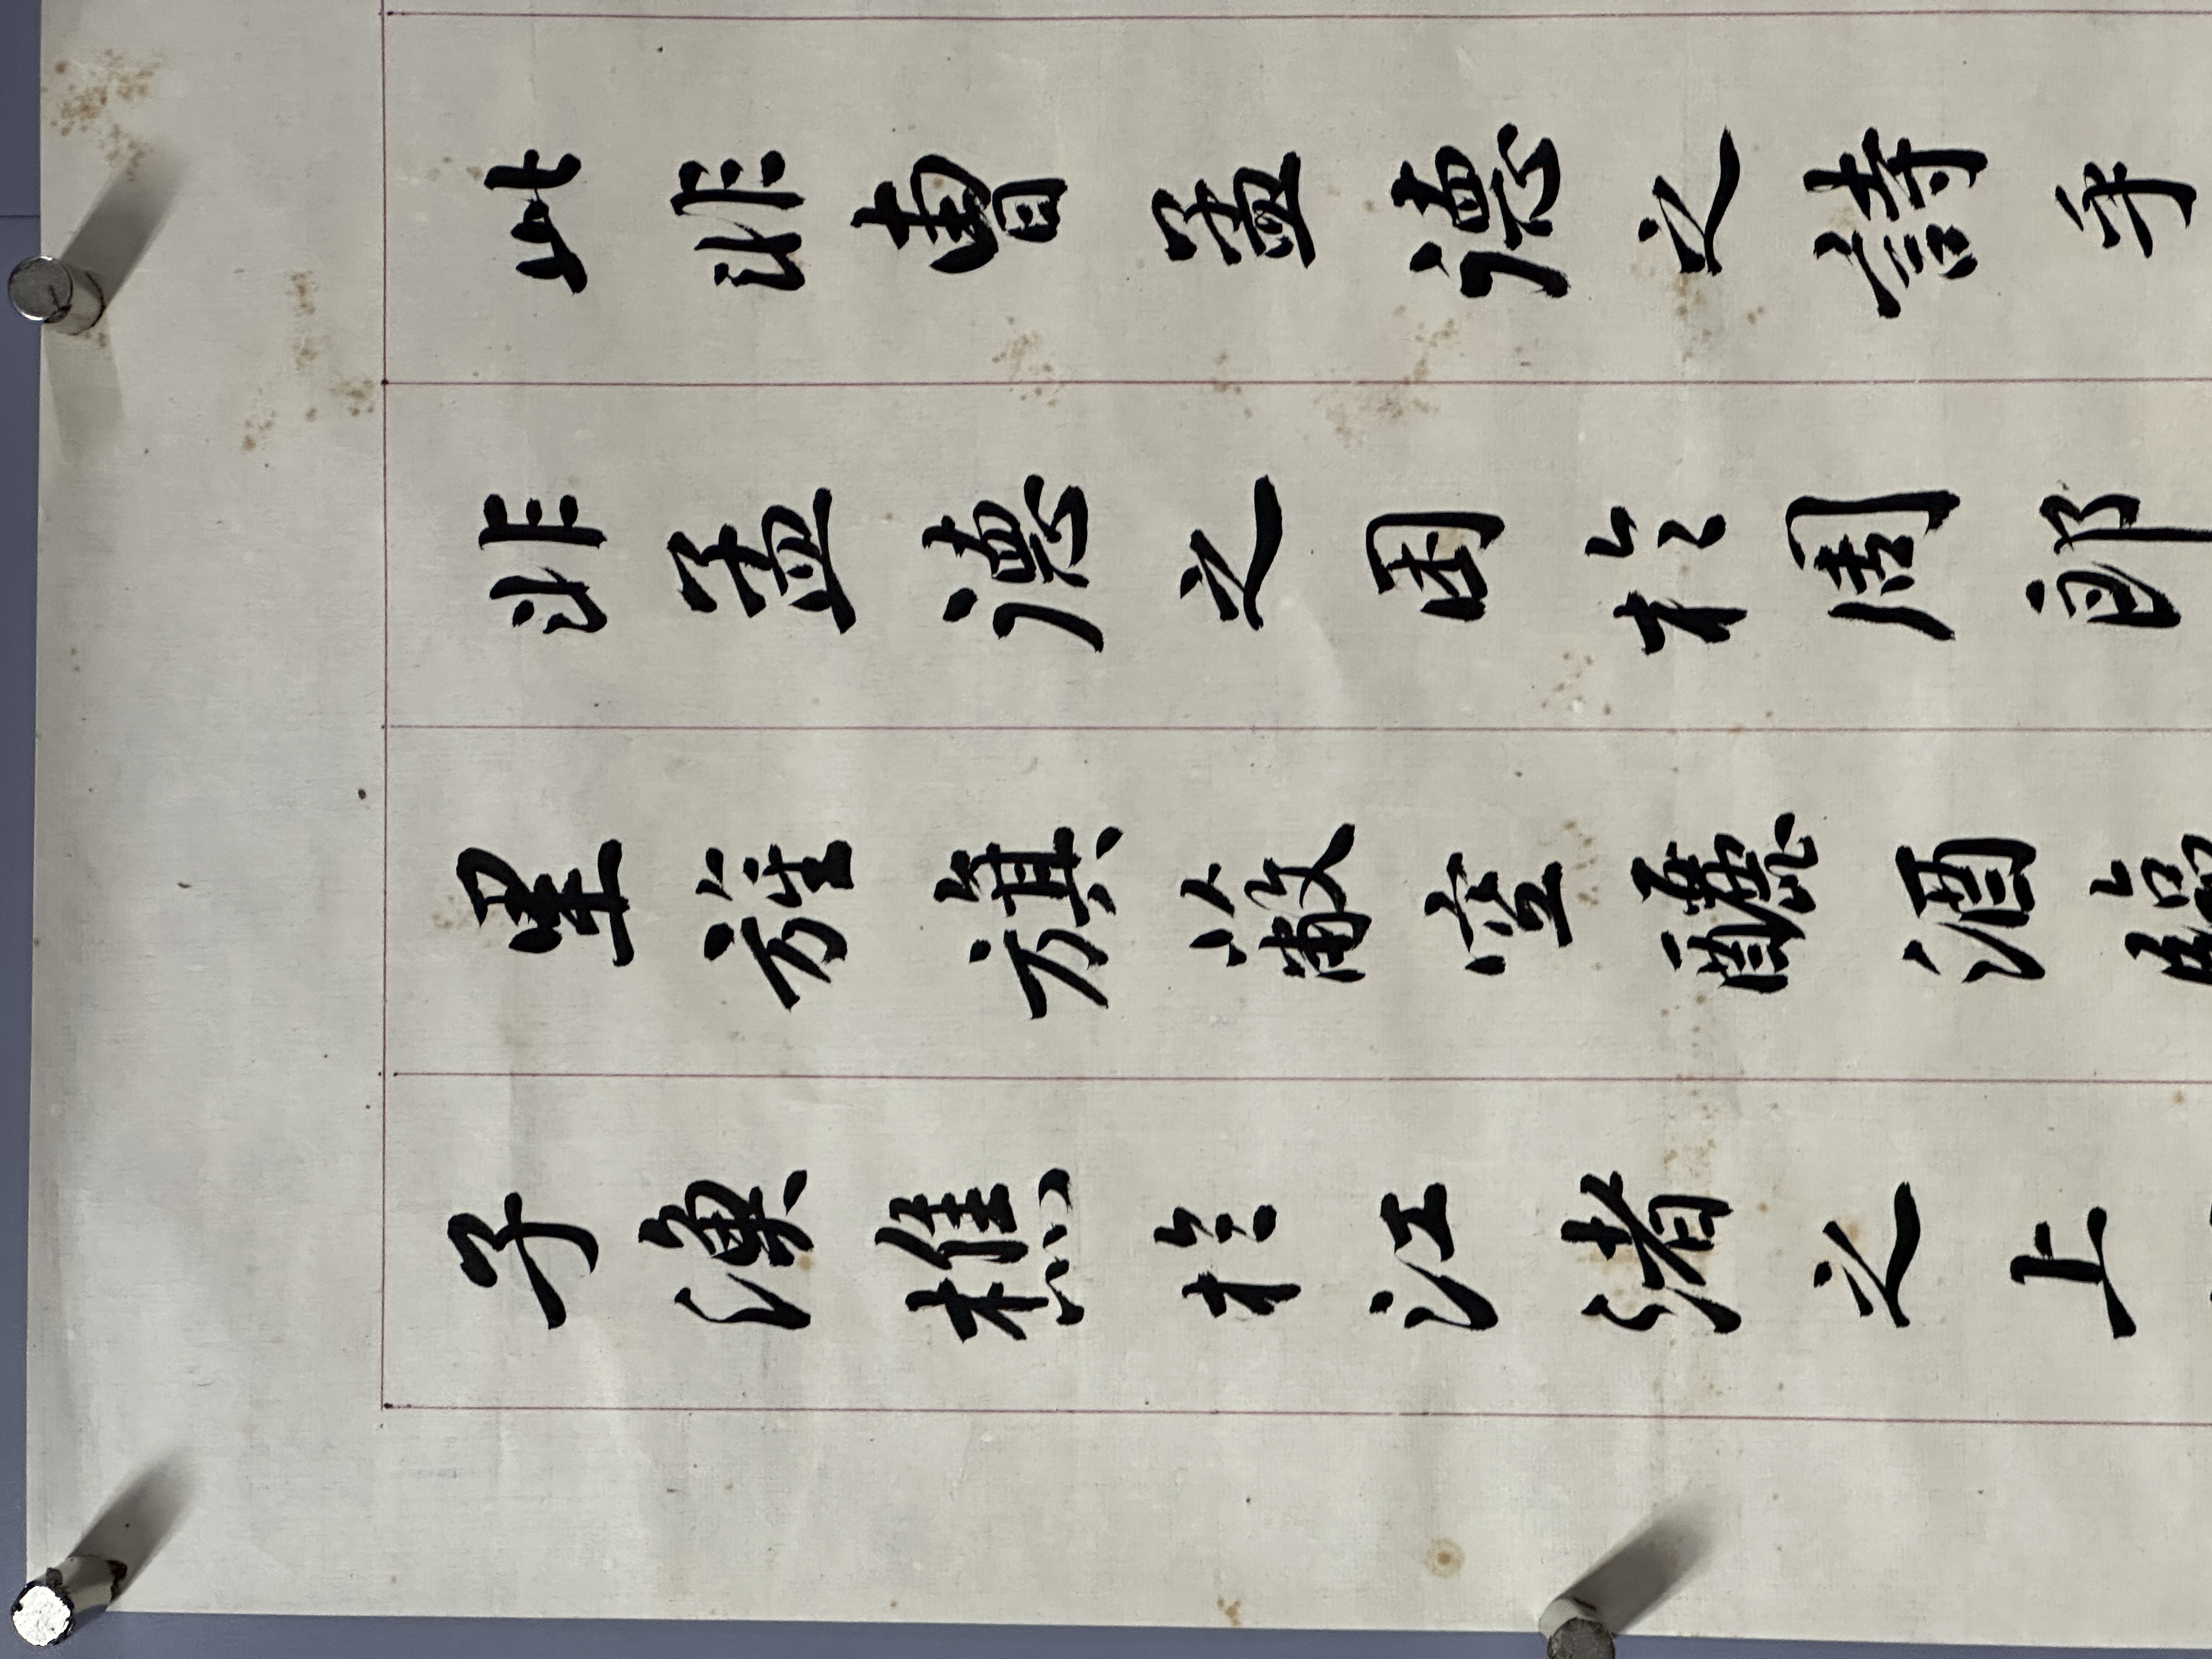 此非曹孟德之詩乎
非孟德之困於周郎
里旌旗蔽空釃酒臨
子漁樵於江渚之上